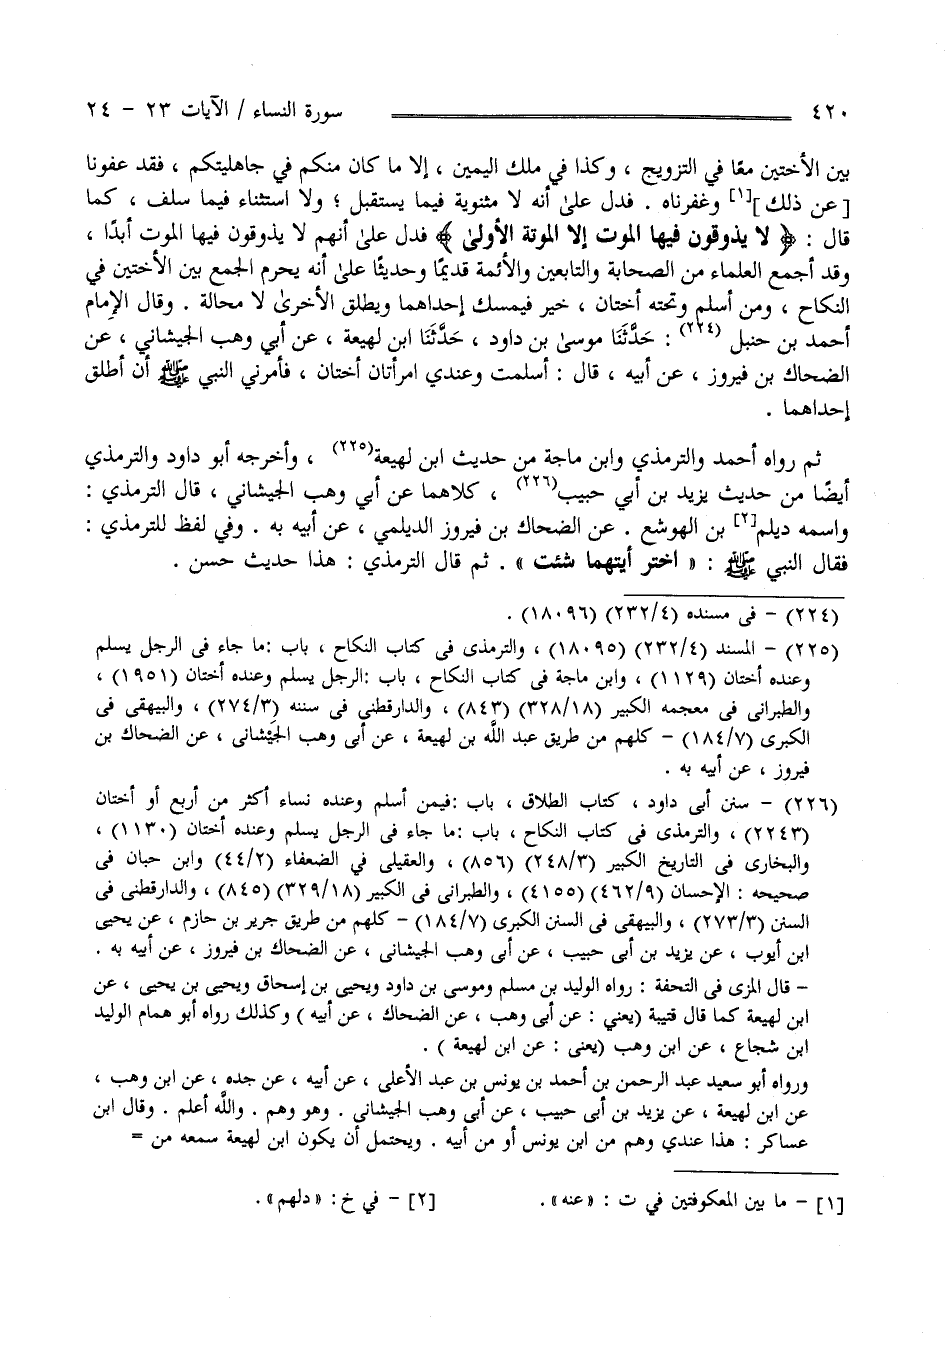 ٤٢٠ سورة النساء / الآيات ٢٣ - ٢٤
بين الأختين معًا في التزويج ، وكذا في ملك اليمين ، إلا ما كان منكم في جاهليتكم ، فقد عفونا
[عن ذلك][١] وغفرناه . فدل علىٰ أنه لا مثنوية فيما يستقبل ؛ ولا استثناء فيما سلف ، كما
قال : ﴿ لا يذوقون فيها الموت إلا الموتة الأولىٰ ﴾ فدل علىٰ أنهم لا يذوقون فيها الموت أبدًا ،
وقد أجمع العلماء من الصحابة والتابعين والأئمة قديمًا وحديثًا علىٰ أنه يحرم الجمع بين الأختين في
النكاح ، ومن أسلم وتحته أختان ، خير فيمسك إحداهما ويطلق الأخرىٰ لا محالة . وقال الإمام
أحمد بن حنبل (٢٢٤) : حَدَّثَنَا موسىٰ بن داود ، حَدَّثَنَا ابن لهيعة ، عن أبي وهب الجيشاني ، عن
الضحاك بن فيروز ، عن أبيه ، قال : أسلمت وعندي امرأتان أختان ، فأمرني النبي ﷺ أن أطلق
إحداهما .
ثم رواه أحمد والترمذي وابن ماجة من حديث ابن لهيعة(٢٢٥) ، وأخرجه أبو داود والترمذي
أيضًا من حديث يزيد بن أبي حبيب(٢٢٦) ، كلاهما عن أبي وهب الجيشاني ، قال الترمذي :
واسمه ديلم[٢] بن الهوشع . عن الضحاك بن فيروز الديلمي ، عن أبيه به . وفي لفظ للترمذي :
فقال النبي ﷺ : « اختر أيتهما شئت » . ثم قال الترمذي : هذا حديث حسن .
(٢٢٤) - فى مسنده (٢٣٢/٤) (١٨٠٩٦) .
(٢٢٥) - المسند (٢٣٢/٤) (١٨٠٩٥) ، والترمذى فى كتاب النكاح ، باب :ما جاء فى الرجل يسلم
وعنده أختان (١١٢٩) ، وابن ماجة فى كتاب النكاح ، باب :الرجل يسلم وعنده أختان (١٩٥١) ،
والطبرانى فى معجمه الكبير (٣٢٨/١٨) (٨٤٣) ، والدارقطنى فى سننه (٢٧٤/٣) ، والبيهقى فى
الكبرى (١٨٤/٧) - كلهم من طريق عبد اللَّه بن لهيعة ، عن أبى وهب الجَيْشانى ، عن الضحاك بن
فيروز ، عن أبيه به .
(٢٢٦) - سنن أبى داود ، كتاب الطلاق ، باب :فيمن أسلم وعنده نساء أكثر من أربع أو أختان
(٢٢٤٣) ، والترمذى فى كتاب النكاح ، باب :ما جاء فى الرجل يسلم وعنده أختان (١١٣٠) ،
والبخارى فى التاريخ الكبير (٢٤٨/٣) (٨٥٦) ، والعقيلى في الضعفاء (٤٤/٢) وابن حبان فى
صحيحه : الإحسان (٤٦٢/٩) (٤١٥٥) ، والطبرانى فى الكبير (٣٢٩/١٨) (٨٤٥) ، والدارقطنى فى
السنن (٢٧٣/٣) ، والبيهقى فى السنن الكبرى (١٨٤/٧) - كلهم من طريق جرير بن حازم ، عن يحيى
ابن أيوب ، عن يزيد بن أبى حبيب ، عن أبى وهب الجيشانى ، عن الضحاك بن فيروز ، عن أبيه به .
- قال المزى فى التحفة : رواه الوليد بن مسلم وموسى بن داود ويحيى بن إسحاق ويحيى بن يحيى ، عن
ابن لهيعة كما قال قتيبة (يعني : عن أبى وهب ، عن الضحاك ، عن أبيه ) وكذلك رواه أبو همام الوليد
ابن شجاع ، عن ابن وهب (يعنى : عن ابن لهيعة ) .
ورواه أبو سعيد عبد الرحمن بن أحمد بن يونس بن عبد الأعلى ، عن أبيه ، عن جده ، عن ابن وهب ،
عن ابن لهيعة ، عن يزيد بن أبى حبيب ، عن أبى وهب الجيشانى . وهو وهم . واللَّه أعلم . وقال ابن
عساكر : هذا عندي وهم من ابن يونس أو من أبيه . ويحتمل أن يكون ابن لهيعة سمعه من =
[١] - ما بين المعكوفتين في ت : «عنه». [٢] - في خ: «دلهم».